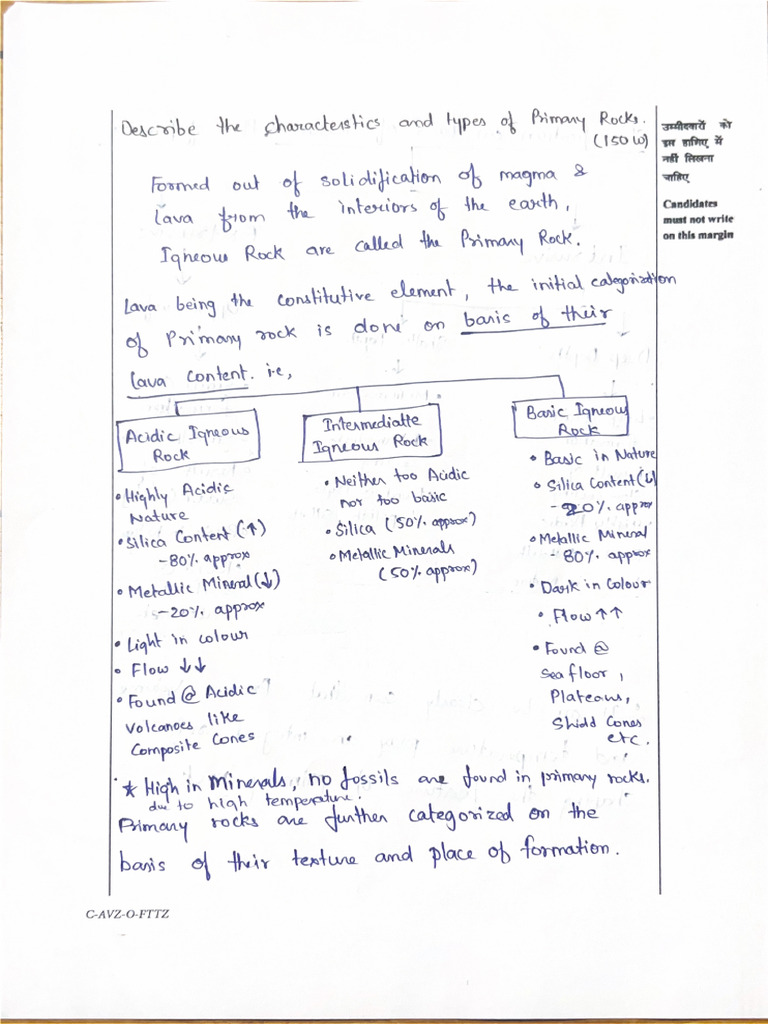 Describe the characterstics and types of Primary Rocks.
(150 W)
उम्मीदवारों को
इस हाशिए में
नहीं लिखना
चाहिए
Candidates
must not write
on this margin
Formed out of solidification of magma &
lava from the interiors of the earth,
Igneous Rock are called the Primary Rock.
Lava being the constitutive element, the initial categorization
of Primary rock is done on basis of their
lava content. i.e,
Acidic Igneous
Rock
• Highly Acidic
Nature
• Silica Content (↑)
- 80% approx
• Metallic Mineral (↓)
- 20% approx
• Light in colour
• Flow ↓↓
• Found @ Acidic
volcanoes like
Composite Cones
Intermediatte
Igneous Rock
• Neither too Acidic
nor too basic
• Silica (50% approx)
• Metallic Minerals
(50% approx)
Basic Igneous
Rock
• Basic in Nature
• Silica Content (↓)
- 20% approx
• Metallic Mineral
- 80% approx
• Dark in Colour
• Flow ↑↑
• Found @
Sea floor,
Plateaus,
Shield Cones
etc.
* High in Minerals, no fossils are found in primary rocks.
due to high temperature.
Primary rocks are further categorized on the
basis of their texture and place of formation.
C-AVZ-O-FTTZ